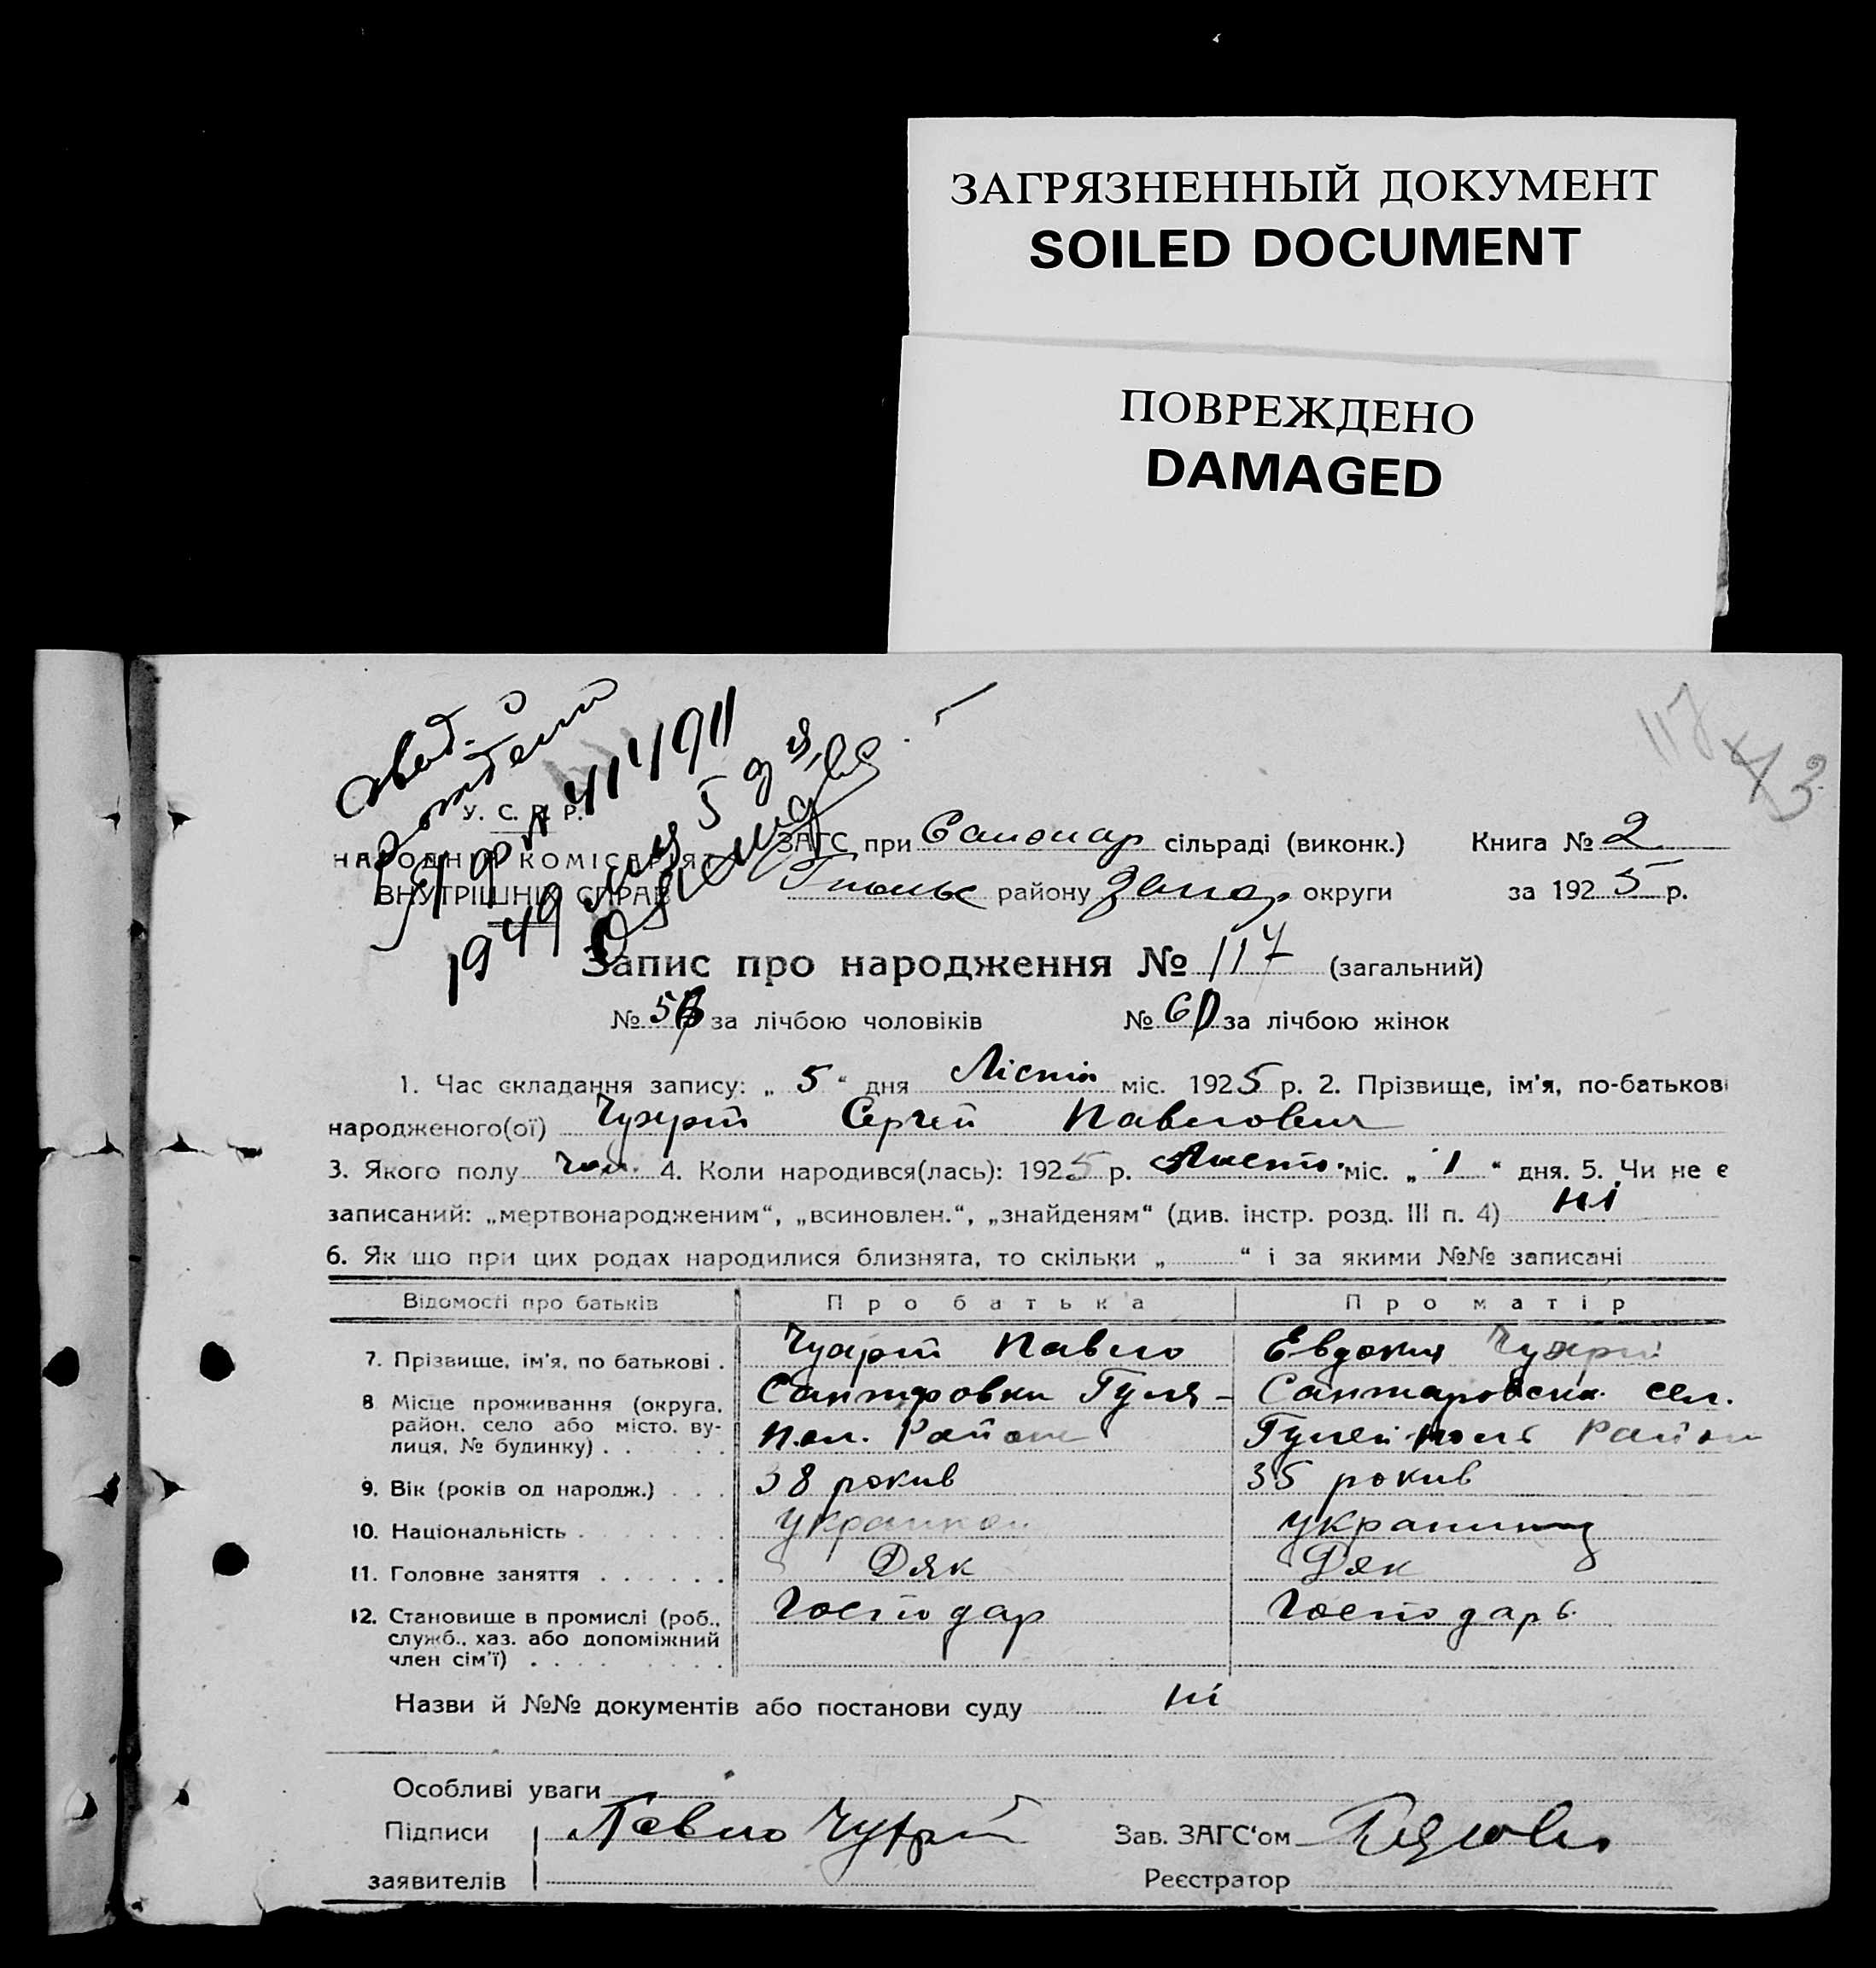 ЗАГРЯЗНЕННЫЙ ДОКУМЕНТ
SOILED DOCUMENT
ПОВРЕЖДЕНО
DAMAGED
117
43
У. С. Р. Р.
НАРОДНІЙ КОМІСАРІЯТ
ВНУТРІШНІХ СПРАВ
1949
ЗАГС при сільраді (виконк.) Книга № 2
району Запор округи за 1925 р.
Запис про народження № 117 (загальний)
№ за лічбою чоловіків № за лічбою жінок
1. Час складання запису: „ 5 “ дня міс. 1925 р. 2. Прізвище, ім'я, по-батькові
народженого(ої) Чухрій Сергей Павлович
3. Якого полу чол. 4. Коли народився(лась): 1925 р. Листо. міс. „ 1 “ дня. 5. Чи не є
записаний: „мертвонародженим“, „всиновлен.“, „знайденям“ (див. інстр. розд. III п. 4) ні
6. Як що при цих родах народилися близнята, то скільки „ “ і за якими №№ записані
Відомості про батьків Про батька Про матір
7. Прізвище, ім'я, по батькові . Чухрій Павло Евдокия Чухрій
8 Місце проживання (округа, район, село або місто, вулиця, № будинку) Гуля-
Пол. Район сел.
Район
9. Вік (років од народж.) . . . 38 рокив 35 рокив
10. Національність
11. Головне заняття . . . . . . Дяк Дяк
12. Становище в промислі (роб., Господар Господарь
служб., хаз. або допоміжний
член сім'ї)
Назви й №№ документів або постанови суду ні
Особливі уваги
Підписи Павло Чухрій Зав. ЗАГС'ом
заявителів Реєстратор